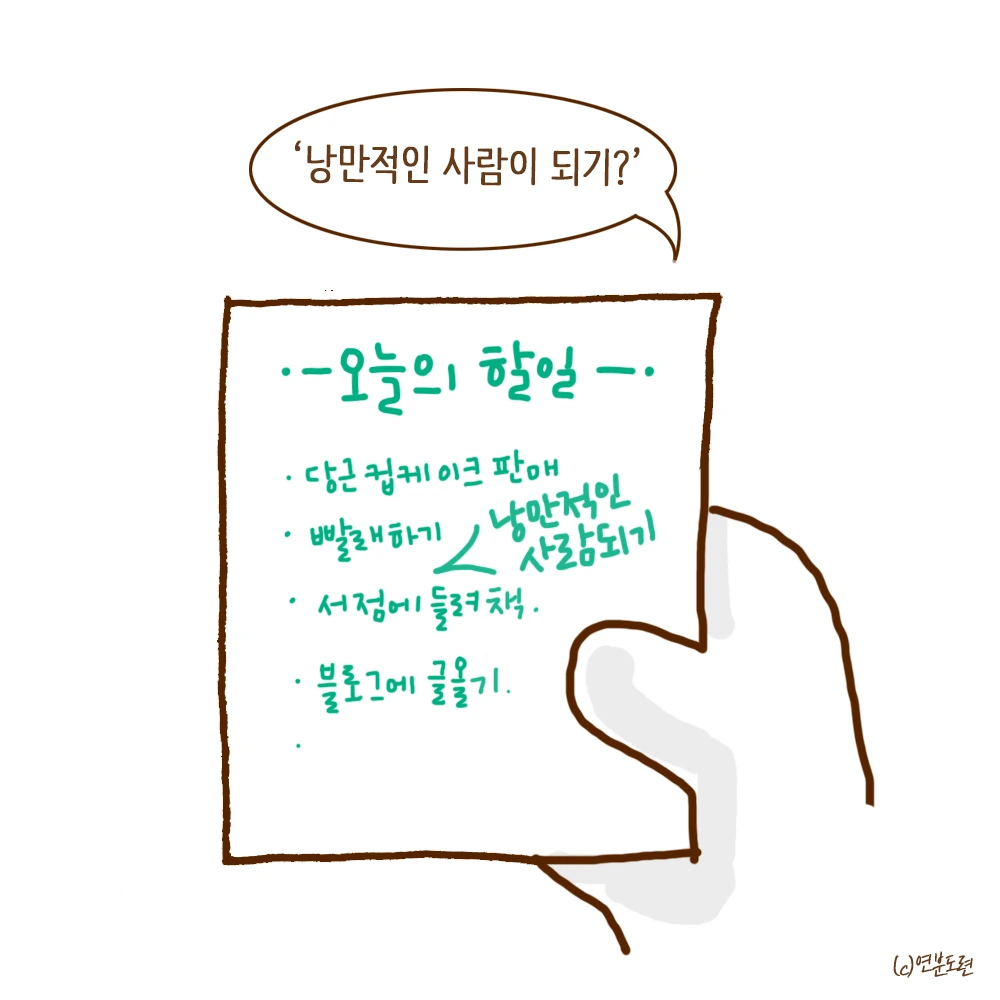 ‘낭만적인 사람이 되기?’
·－오늘의 할일－·
· 당근컵케이크 판매
· 빨래하기
낭만적인
사람되기
· 서점에 들려 책.
· 블로그에 글올기.
·
(c)연분도련